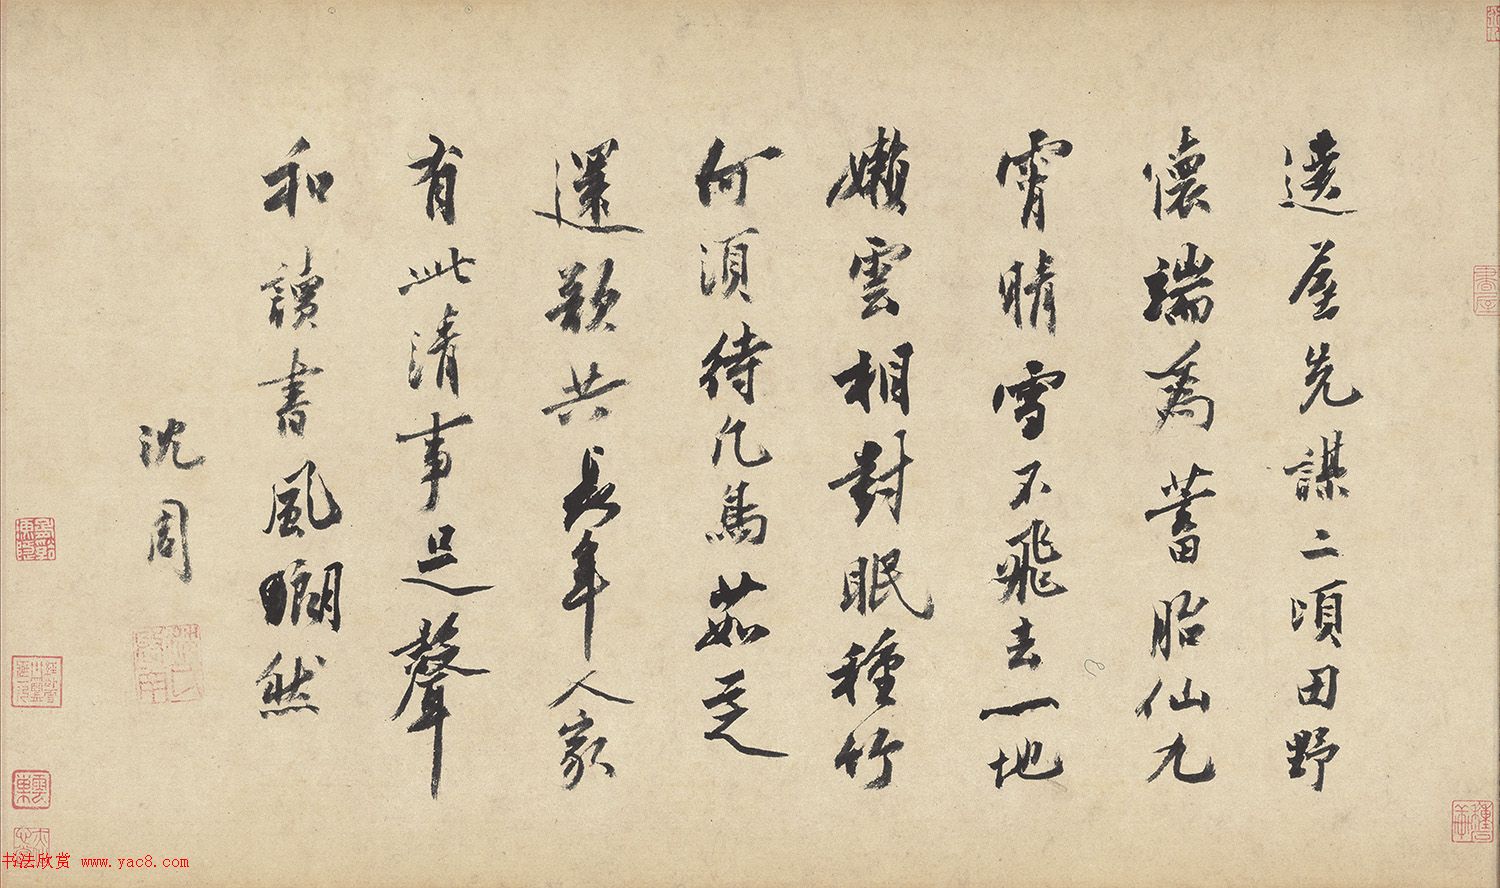 遶屋先謀二頃田野
懷端為蓄胎仙九
霄晴雪不飛去一地
嬾雲相對眠種竹
何須待凡鳥茹芝
還欲共長年人家
有此清事足聲
和讀書風瑯然
沈周
书法欣赏 www.yac8.com